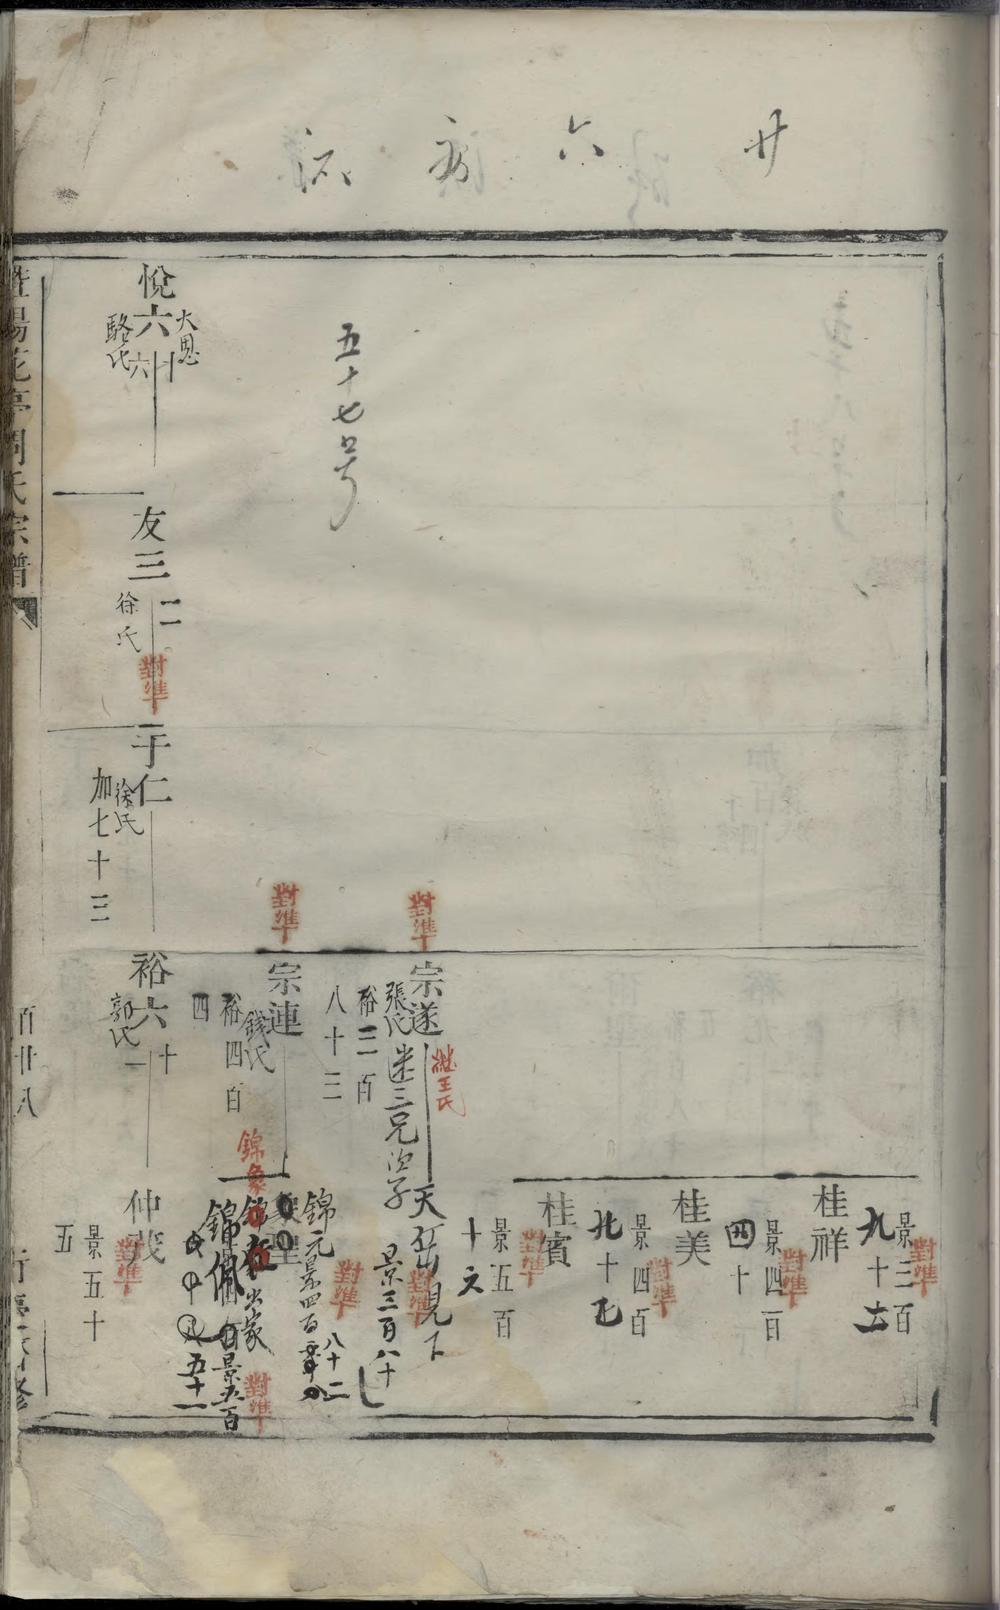 廿六房派
五十七号
桂祥
景三百
九十
對準
桂美
景四百
四十
對準
桂賓
景四百
九十
對準
景五百
十文
對準
宗遂
張氏
繼王氏
裕三百
八十三
對準
迷三兄次子
天
見下
景三百八十
對準
宗連
錢氏
裕四百
四
對準
錦元
景四百
八十二
對準
聖
錦象
出家
錦佩
景五百
五十一
對準
悅六
大恩
十六
駱氏
友三
二
徐氏
對準
于仁
徐氏
加七十三
裕六
十一
郭氏
仲茂
景五十
五
對準
暨陽花亭周氏宗譜
百廿八